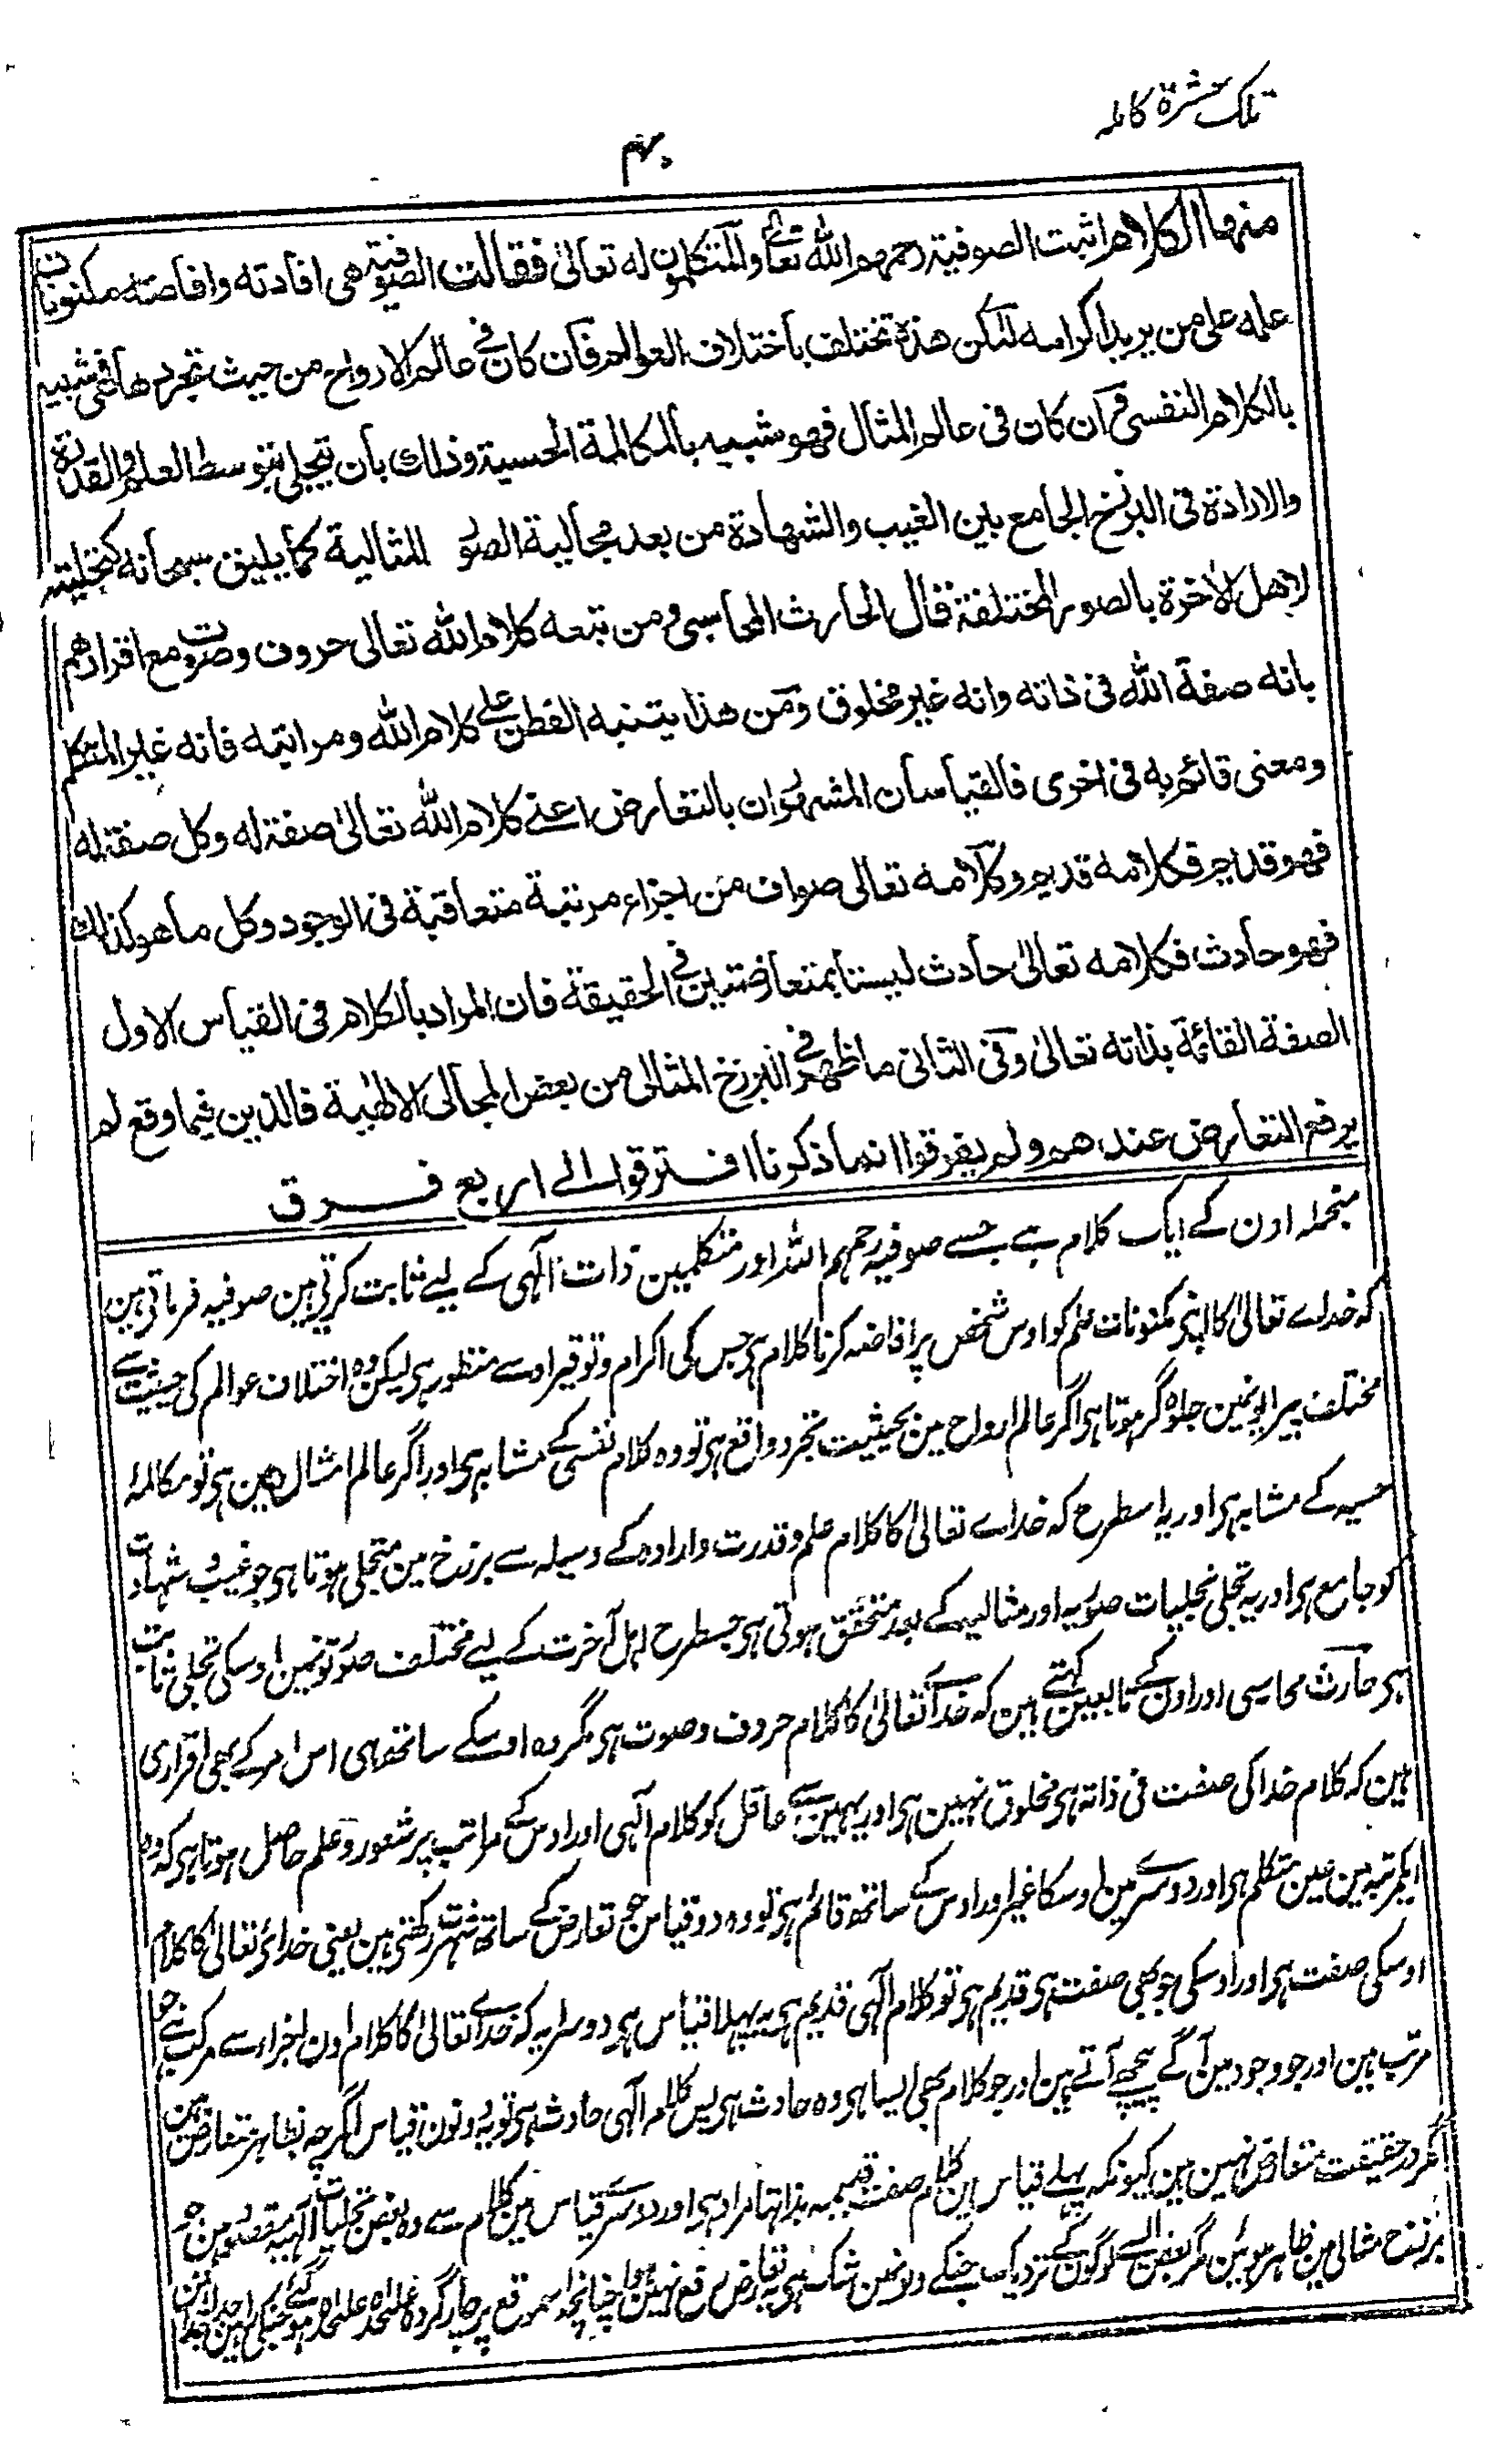 تلک عشرۃ کاملہ
منها الكلام اثبت الصوفية رحمهم الله تعالى والمتكلمون له تعالى فقالت الصوفية هى افادته وافاضته مكنونات
علمه على من يريد اكرامه لكن هذه تختلف باختلاف العوالم فان كان فى عالم الارواح من حيث تجردها فهى شبيه
بالكلام النفسى وان كان فى عالم المثال فهو شبيه بالمكالمة الحسية وذلك بان يتجلى بتوسط العلم والقدرة
والارادة فى البرزخ الجامع بين الغيب والشهادة من بعد مجالية الصور المثالية كما يليق سبحانه كتجليته
لاهل الاخرة بالصور المختلفة فقال الحارث المحاسبى ومن تبعه كلام الله تعالى حروف وصوت مع اقرارهم
بانه صفة الله فى ذاته وانه غير مخلوق ومن هذا يتنبه الفطن على كلام الله ومراتبه فانه غير المتكلم
ومعنى قائم به فى اخرى فالقياسان المشهوران بالتعارض اعنى كلام الله تعالى صفة له وكل صفة له
فهو قديم فكلامه قديم وكلامه تعالى من اجزاء مرتبة متعاقبة فى الوجود وكل ما هو كذلك
فهو حادث فكلامه تعالى حادث ليستا بمتعارضتين فى الحقيقة فان المراد بالكلام فى القياس الاول
الصفة القائمة بذاته تعالى وفى الثانى ما ظهر فى البرزخ المثالى من بعض المجالى الالهية فالذين فيما وقع لم
يرفع التعارض عندهم ولم يفرقوا انما ذكرنا افترقوا الى اربع فرق
منجملہ اون کے ایک کلام ہے جسے صوفیہ رحمہم اللہ اور متکلمین ذات الٰہی کے لیے ثابت کرتی ہین صوفیہ فرماتی ہین
کہ خداے تعالیٰ کا اپنی مکنونات علم کو اوس شخص پر افاضہ کرنا کلام ہی جس کی اکرام و توقیر اوسے منظور ہی لیکن وہ اختلاف عوالم کی حیثیت سے
مختلف پیرایونمین جلوہ گر ہوتا ہی اگر عالم ارواح مین بحیثیت تجرد واقع ہی تو وہ کلام نفسی کے مشابہ ہی اور اگر عالم امثال مین ہی تو مکالمۂ
حسیہ کے مشابہ ہی اور یہ اسطرح کہ خداے تعالیٰ کا کلام علم و قدرت و ارادہ کے وسیلہ سے برزخ مین متجلی ہوتا ہی جو غیب و شہادت
کو جامع ہی اور یہ تجلی تجلیات صوریہ اور مثالیہ کے بعد متحقق ہوتی ہی جسطرح اہل آخرت کے لیے مختلف صورتونمین اوسکی تجلی ثابت
ہی حارث محاسبی اور اون کے تابعین کہتے ہین کہ خداے تعالیٰ کا کلام حروف و صوت ہی مگر وہ اوسکے ساتھ ہی اس امر کے بھی اقراری
ہین کہ کلام خدا کی صفت فی ذاتہ ہی مخلوق نہین ہی اور یہین سے عاقل کو کلام الٰہی اور اوس کے مراتب پر شعور و علم حاصل ہوتا ہی کہ وہ
ایکمرتبہ مین عین متکلم ہی اور دوسرے مین اوسکا غیر اور اوس کے ساتھ قائم ہی تو وہ دو قیاس جو تعارض کے ساتھ شہرت رکھتی ہین یعنی خدائے تعالیٰ کا کلام
اوسکی صفت ہی اور اوسکی جو بھی صفت ہی قدیم ہی تو کلام الٰہی قدیم ہی یہ پہلا قیاس ہی دوسرا یہ کہ خداے تعالیٰ کا کلام اون اجزاء سے مرکب ہے جو
مرتب ہین اور جو وجود مین آگے پیچھے آتے ہین اور جو کلام بھی ایسا ہی وہ حادث ہی پس کلام الٰہی حادث ہی تو یہ دونون قیاس اگرچہ بظاہر متعارض ہین
مگر درحقیقت متعارض نہین ہین کیونکہ پہلے قیاس مین کلام صفت قدیمہ بذاتہا مراد ہی اور دوسرے قیاس مین کلام سے وہ بعض تجلیات الٰہیہ مقصود ہین جو
برزخ مثالی مین ظاہر ہوئین مگر بعض ایسے لوگون کے نزدیک جنکے دلونمین شک ہی یہ تعارض رفع نہین ہوا چنانچہ اسموقع پر چار گروہ علیحدہ علیحدہ ہو گئے